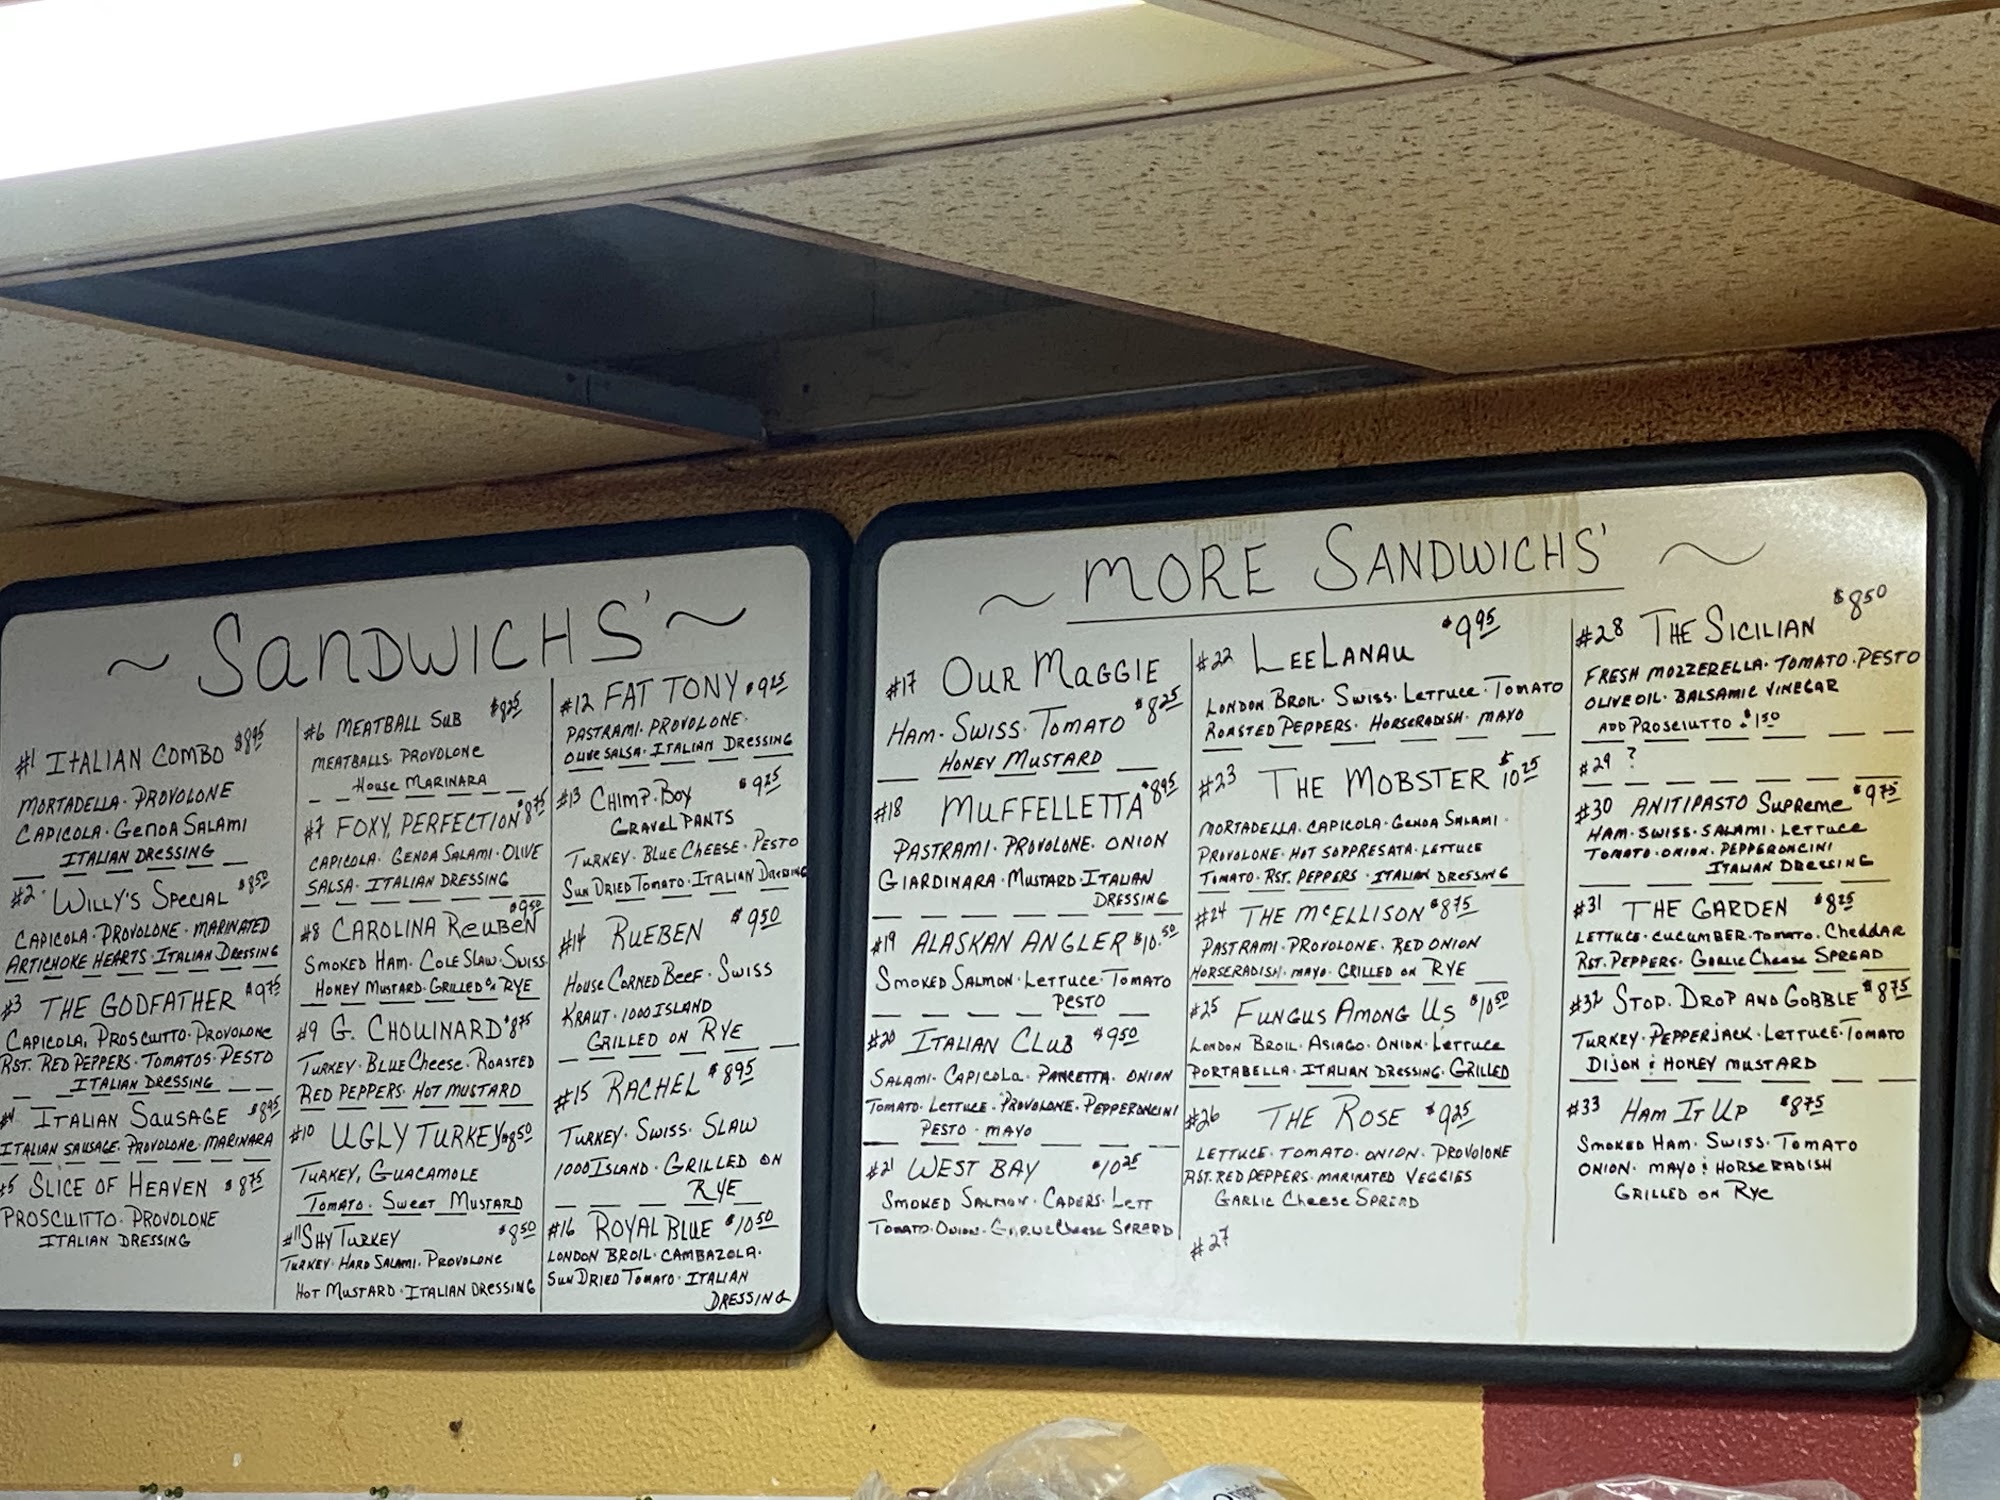 ~ SANDWICHS' ~
#1 ITALIAN COMBO $8.95
MORTADELLA · PROVOLONE
CAPICOLA · GENOA SALAMI
ITALIAN DRESSING
#2 WILLY'S SPECIAL $8.50
CAPICOLA · PROVOLONE · MARINATED
ARTICHOKE HEARTS · ITALIAN DRESSING
#3 THE GODFATHER $9.75
CAPICOLA, PROSCIUTTO · PROVOLONE
RST. RED PEPPERS · TOMATOS · PESTO
ITALIAN DRESSING
#4 ITALIAN SAUSAGE $8.95
ITALIAN SAUSAGE · PROVOLONE · MARINARA
#5 SLICE OF HEAVEN $8.75
PROSCIUTTO · PROVOLONE
ITALIAN DRESSING
#6 MEATBALL SUB $8.25
MEATBALLS · PROVOLONE
HOUSE MARINARA
#7 FOXY, PERFECTION $8.75
CAPICOLA · GENOA SALAMI · OLIVE
SALSA · ITALIAN DRESSING
$9.50
#8 CAROLINA REUBEN
SMOKED HAM · COLE SLAW · SWISS
HONEY MUSTARD · GRILLED ON RYE
#9 G. CHOUINARD $8.75
TURKEY · BLUE CHEESE · ROASTED
RED PEPPERS · HOT MUSTARD
#10 UGLY TURKEY $8.50
TURKEY, GUACAMOLE
TOMATO · SWEET MUSTARD
#11 SHY TURKEY $8.50
TURKEY · HARD SALAMI · PROVOLONE
HOT MUSTARD · ITALIAN DRESSING
#12 FAT TONY $9.25
PASTRAMI · PROVOLONE ·
OLIVE SALSA · ITALIAN DRESSING
#13 CHIMP · BOY $9.25
GRAVEL PANTS
TURKEY · BLUE CHEESE · PESTO
SUN DRIED TOMATO · ITALIAN DRESSING
#14 RUEBEN $9.50
HOUSE CORNED BEEF · SWISS
KRAUT · 1000 ISLAND
GRILLED ON RYE
#15 RACHEL $8.95
TURKEY · SWISS · SLAW
1000 ISLAND · GRILLED ON
RYE
#16 ROYAL BLUE $10.50
LONDON BROIL · CAMBAZOLA ·
SUN DRIED TOMATO · ITALIAN
DRESSING
~ MORE SANDWICHS' ~
#17 OUR MAGGIE
HAM · SWISS · TOMATO $8.25
HONEY MUSTARD
#18 MUFFELLETTA $8.95
PASTRAMI · PROVOLONE · ONION
GIARDINARA · MUSTARD · ITALIAN
DRESSING
#19 ALASKAN ANGLER $10.50
SMOKED SALMON · LETTUCE · TOMATO
PESTO
#20 ITALIAN CLUB $9.50
SALAMI · CAPICOLA · PANCETTA · ONION
TOMATO · LETTUCE · PROVOLONE · PEPPERONCINI
PESTO · MAYO
#21 WEST BAY $10.25
SMOKED SALMON · CAPERS · LETT
TOMATO · ONION · GARLIC CHEESE SPREAD
#22 LEELANAU $9.95
LONDON BROIL · SWISS · LETTUCE · TOMATO
ROASTED PEPPERS · HORSERADISH · MAYO
#23 THE MOBSTER $10.25
MORTADELLA · CAPICOLA · GENOA SALAMI ·
PROVOLONE · HOT SOPPRESATA · LETTUCE
TOMATO · RST. PEPPERS · ITALIAN DRESSING
#24 THE McELLISON $8.75
PASTRAMI · PROVOLONE · RED ONION
HORSERADISH · MAYO · GRILLED ON RYE
#25 FUNGUS AMONG US $10.50
LONDON BROIL · ASIAGO · ONION · LETTUCE
PORTABELLA · ITALIAN DRESSING · GRILLED
#26 THE ROSE $9.25
LETTUCE · TOMATO · ONION · PROVOLONE
RST. RED PEPPERS · MARINATED VEGGIES
GARLIC CHEESE SPREAD
#27
#28 THE SICILIAN $8.50
FRESH MOZZERELLA · TOMATO · PESTO
OLIVE OIL · BALSAMIC VINEGAR
ADD PROSCIUTTO · $1.50
#29 ?
#30 ANITIPASTO SUPREME $9.75
HAM · SWISS · SALAMI · LETTUCE
TOMATO · ONION · PEPPERONCINI
ITALIAN DRESSING
#31 THE GARDEN $8.25
LETTUCE · CUCUMBER · TOMATO · CHEDDAR
RST. PEPPERS · GARLIC CHEESE SPREAD
#32 STOP, DROP AND GOBBLE $8.75
TURKEY · PEPPERJACK · LETTUCE · TOMATO
DIJON & HONEY MUSTARD
#33 HAM IT UP $8.75
SMOKED HAM · SWISS · TOMATO
ONION · MAYO & HORSERADISH
GRILLED ON RYE
Original